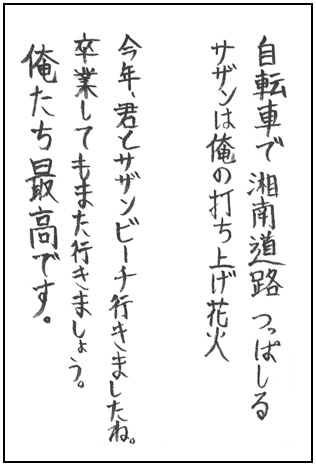 自転車で 湘南道路 つっぱしる
サザンは俺の打ち上げ花火
今年、君とサザンビーチ行きましたね。
卒業してもまた行きましょう。
俺たち最高です。